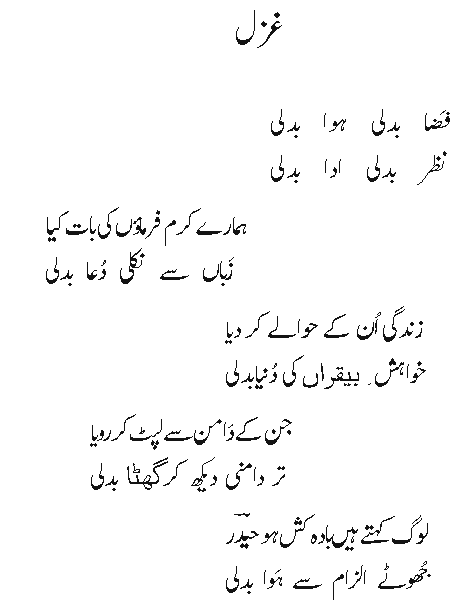 غزل
فَضا بدلی ہوا بدلی
نظر بدلی ادا بدلی
ہمارے کرم فرماؤں کی بات کیا
زَباں سے نکلی دُعا بدلی
زندگی اُن کے حوالے کر دیا
خواہشِ بیقراں کی دُنیا بدلی
جن کے دَامن سے لپٹ کر رویا
تر دامنی دیکھ کر گھٹا بدلی
لوگ کہتے ہیں بادہ کش ہو حیدؔر
جُھوٹے الزام سے ہَوا بدلی